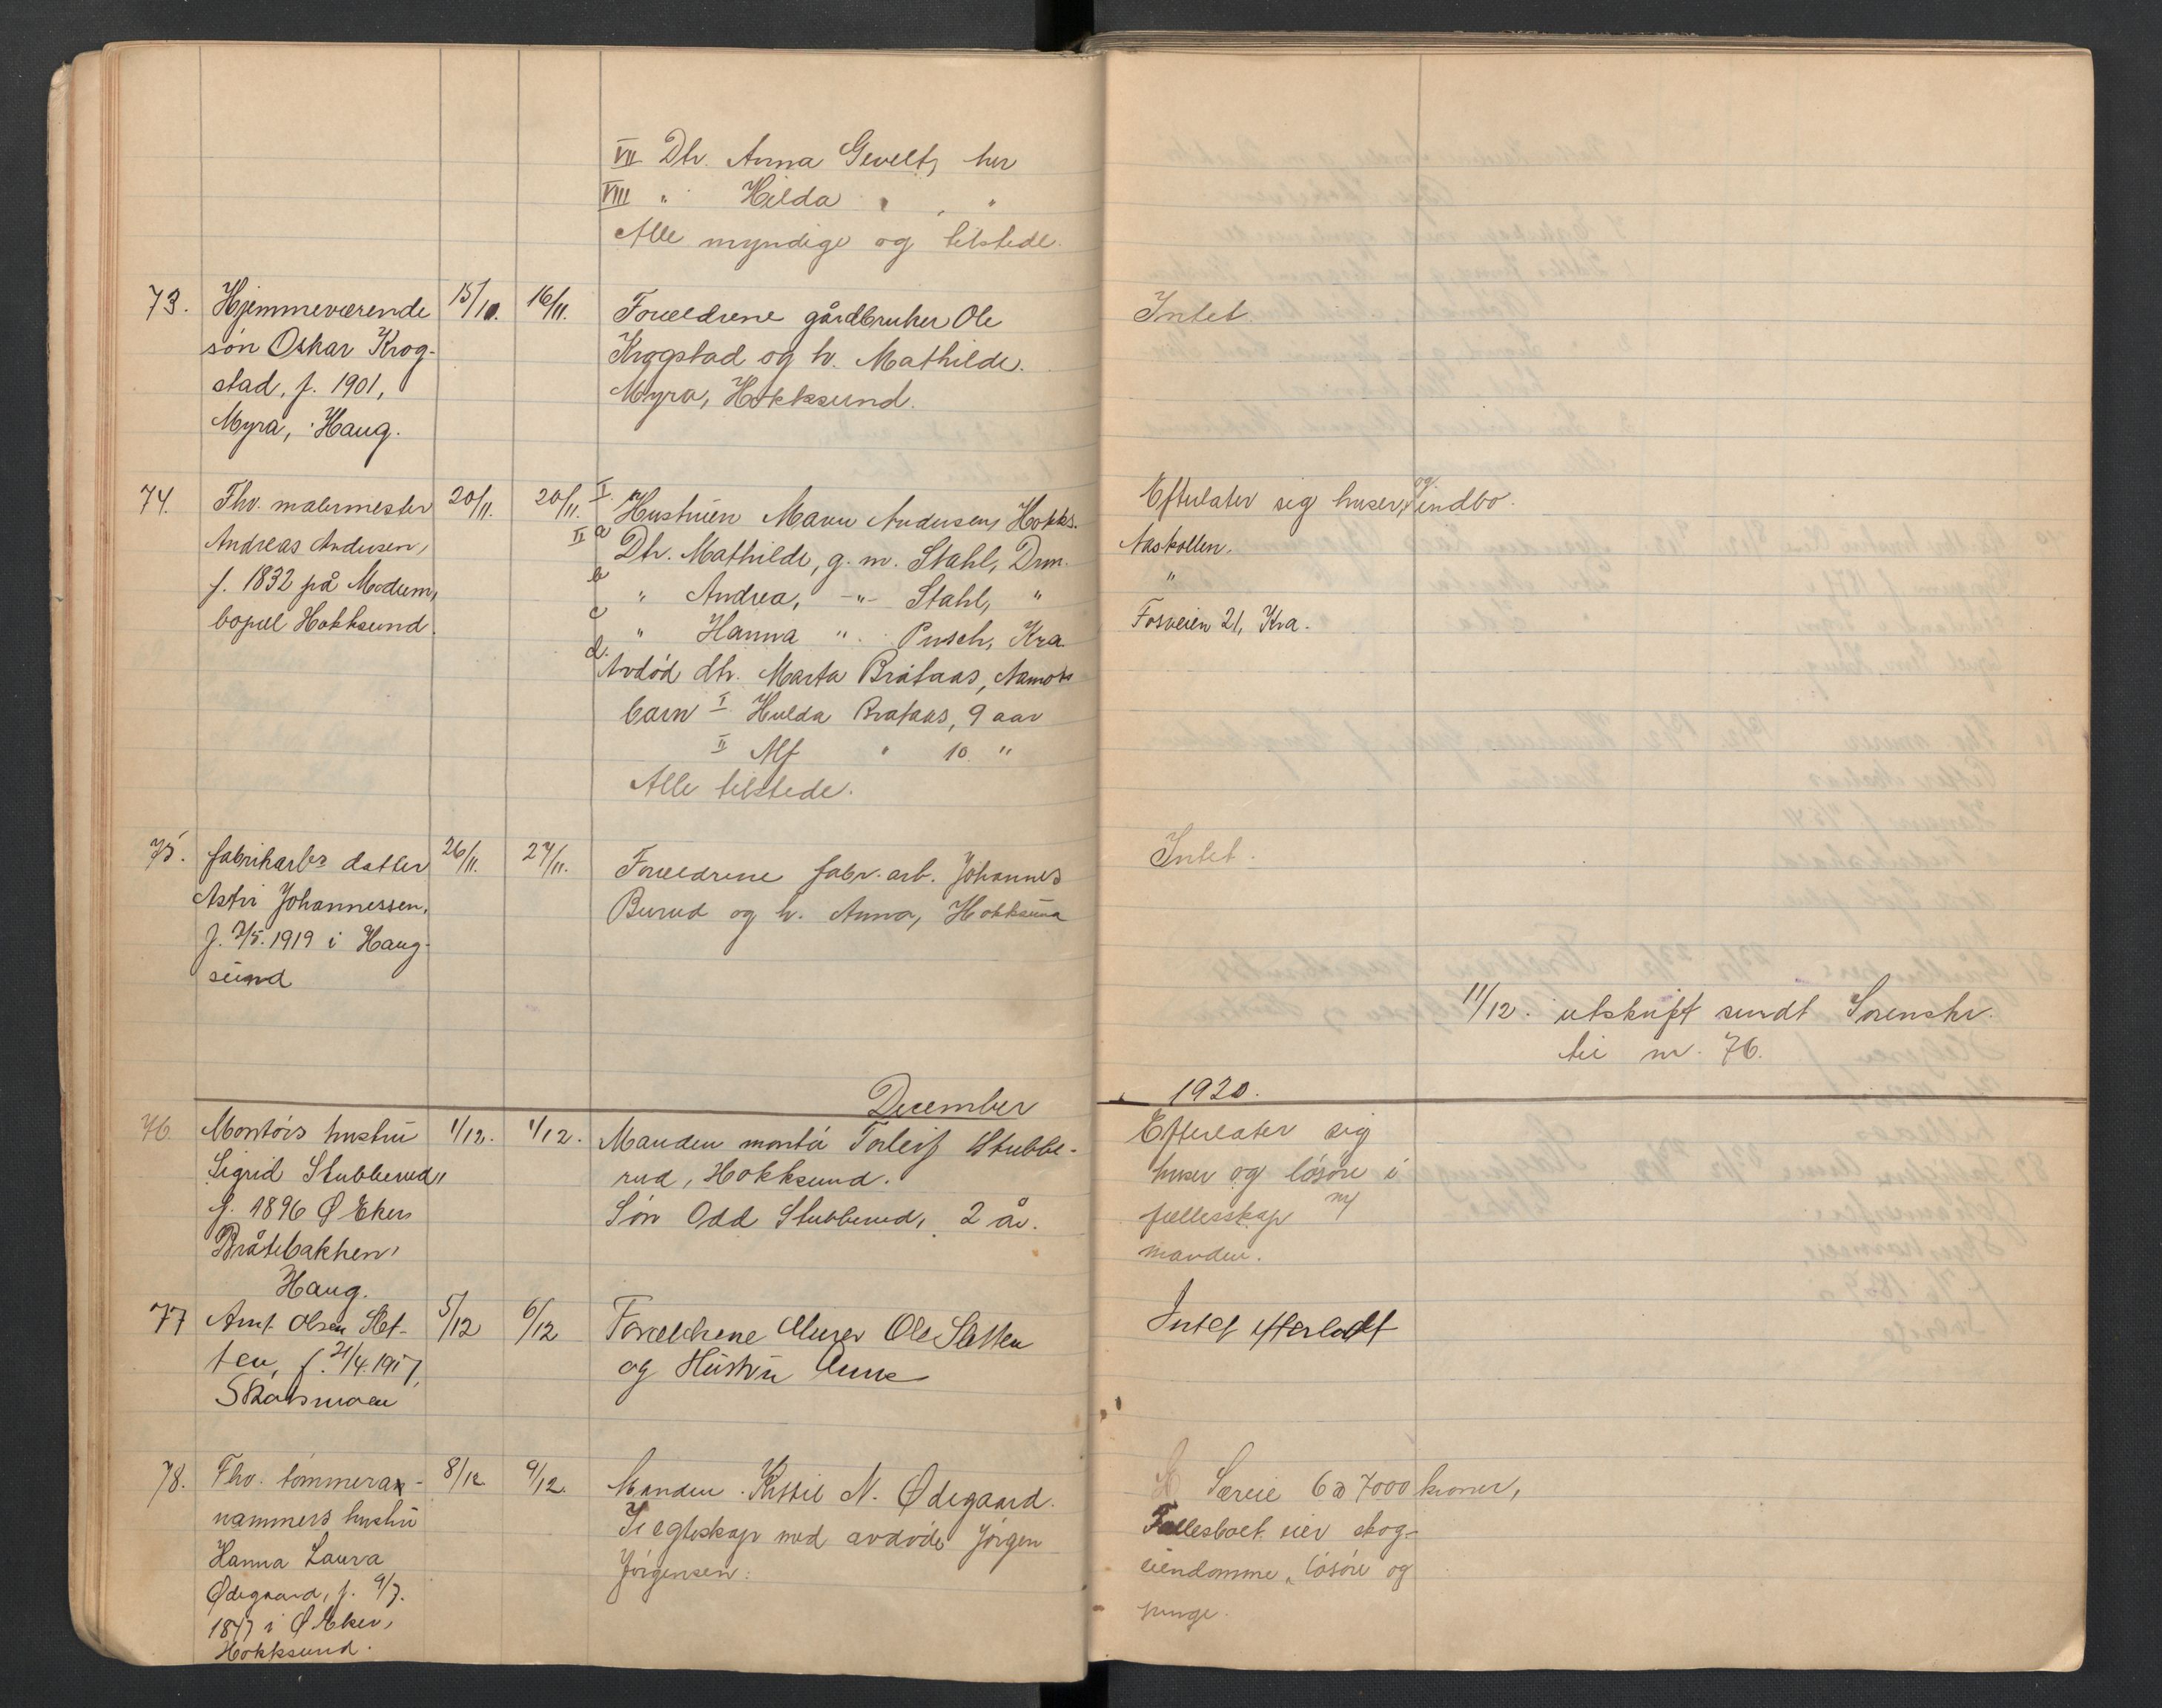 VII Dtr. Anna Gevelt, her
VIII " Hilda " , "
Alle myndige og tilstede.
73. Hjemmeværende 15/10. 16/11. Forældrene gårdbruker Ole Intet.
søn Oskar Krog- Krogstad og h. Mathilde.
stad, f. 1901, Myra, Hokksund.
Myra, Haug.
74. Fhv. malermester 20/11. 20/11. I. Hustruen Maren Andersen, Hokks. Efterlater sig huser, og indbo.
Andreas Andersen, II a Dtr. Mathilde, g. m. Stahl, Drm. Aaskollen.
f. 1832 på Modum, b " Andrea, -"- Stahl, " "
bopæl Hokksund. c " Hanna " Pusch, Kra. Fosveien 21, Kra.
d. Avdød dtr. Marta Bråtaas, Aamot
barn I Hulda Brataas, 9 aar
II Alf " 10 "
Alle tilstede.
75. fabrikarbs datter 26/11. 27/11. Forældrene fabr. arb. Johannes Intet.
Astri Johannessen, Burud og h. Anna, Hokksund
f. 7/5. 1919 i Haug-
sund
11/12. utskrift sendt Sorenskr.
til nr. 76.
December 1920.
76. Montørs hustru 1/12. 1/12. Manden montør Torleif Stubbe- Efterlater sig
Sigrid Stubberud, rud, Hokksund. huser og løsøre i
f. 1896 Ø Eker Søn Odd Stubberud, 2 år. fællesskap m/
Bråtebakken, manden.
Haug.
77 Arnt Olsen Slet- 5/12 6/12 Forældrene Murer Ole Sletten Intet efterladt
ten, f. 21/4. 1917, og Hustru Anna
Skotsmoen
78. Fhv. tømmeran- 8/12 9/12. Manden Kittil N. Ødegaard. Særeie 6 à 7000 kroner,
nammers hustru I egteskap med avdøde Jørgen Fællesboet eier skog-
Hanna Laura Jørgensen: eiendomme, løsøre og
Ødegaard, f. 9/7. penge.
1847 i Ø Eker,
Hokksund.